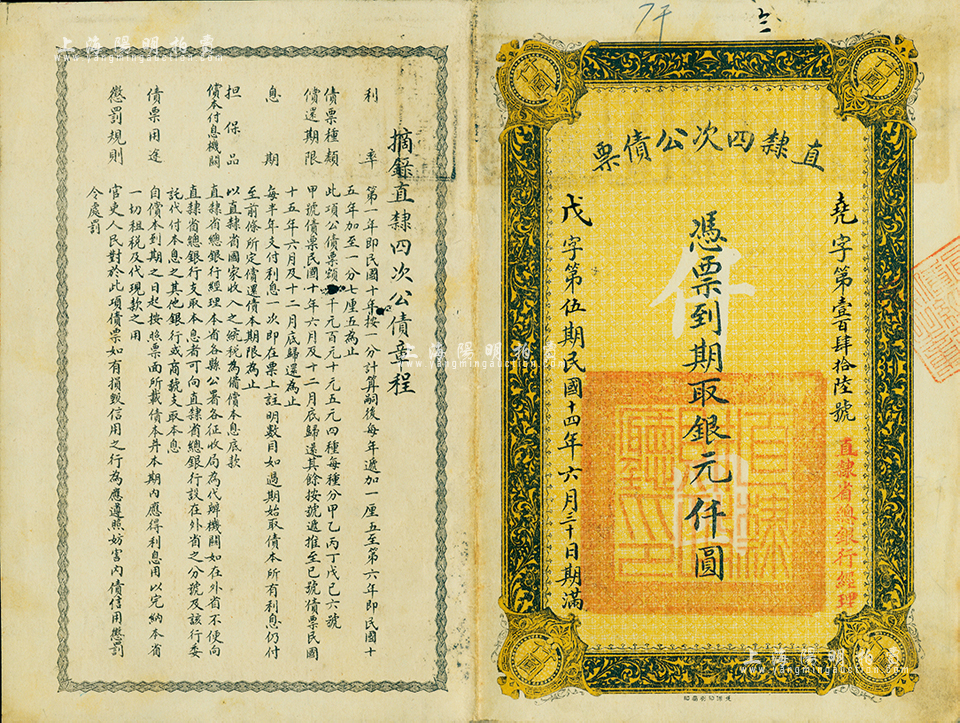 直隸四次公債票
堯字第壹百肆拾陸號
直隸省總銀行經理
憑票到期取銀元仟圓
仟
戊字第伍期民國十四年六月三十日期滿
摘錄直隸四次公債章程
利率 第一年即民國十年按一分計算嗣後每年遞加一厘五至第六年即民國十
五年加至一分七厘五為止
債票種類 此項公債票額千元百元十元五元四種每種分甲乙丙丁戊己六號
償還期限 甲號債票民國十年六月及十二月底歸還其餘按號遞推至己號債票民國
十五年六月及十二月底歸還為止
息期 每半年支付利息一次即在票上註明數目如過期始取債本所有利息仍付
至前條所定償還債本期限為止
担保品 以直隸省國家收入之統税為備償本息底款
償本付息機關 直隸省總銀行經理本省各縣公署各征收局為代辦機關如在外省不便向
直隸省總銀行支取本息者可向直隸省總銀行設在外省之分號及該行委
託代付本息之其他銀行或商號支取本息
債票用途 自償本到期之日起按照票面所載債本并本期內應得利息用以完納本省
一切租税及代現款之用
懲罰規則 官吏人民對於此項債票如有損毀信用之行為應遵照妨害內債信用懲罰
令處罰
上海陽明拍賣
www.yangmingauction.com